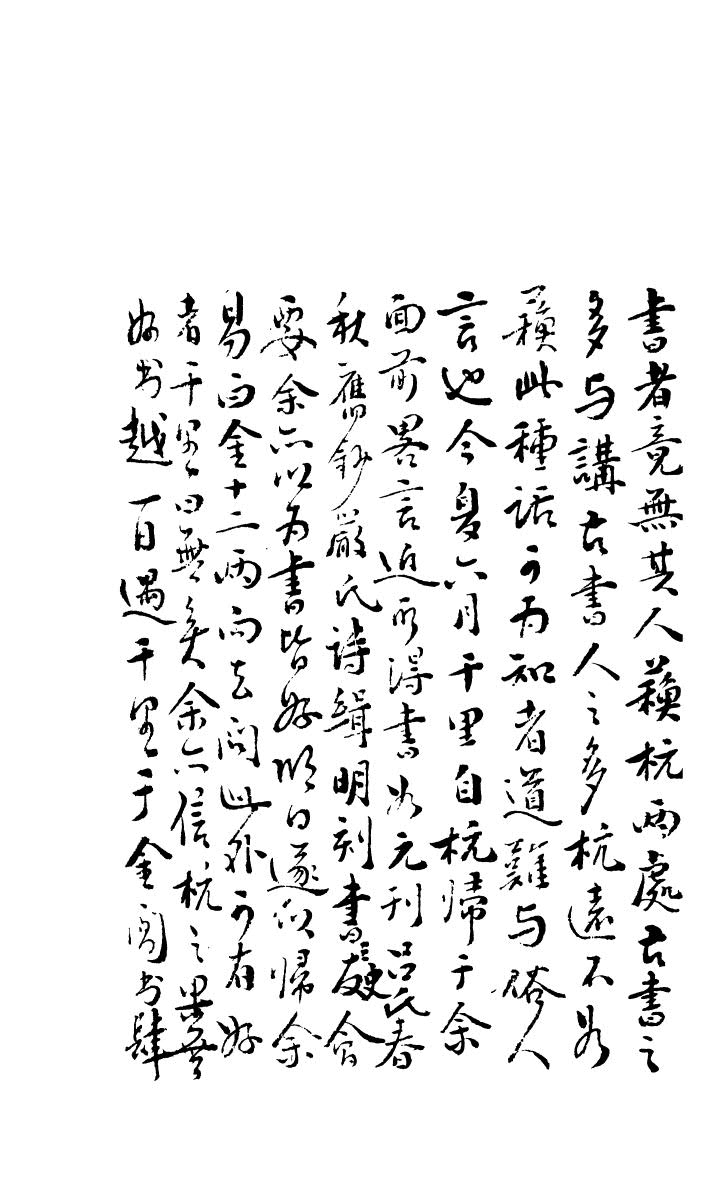 書者竟無其人蘓杭兩處古書之
多与講古書人之多杭遠不若
蘓此種話可为知者道難与俗人
言也今夏六月千里自杭歸于余
面前畧言近所得書如元刊呂氏春
秋舊鈔嚴氏詩緝明刻書叙會
要余亦以为書皆好明日遂以歸余
易白金十二兩而去問此外可有好
者千里曰無矣余亦信杭之果無
好书越一日遇千里于金閶书肆